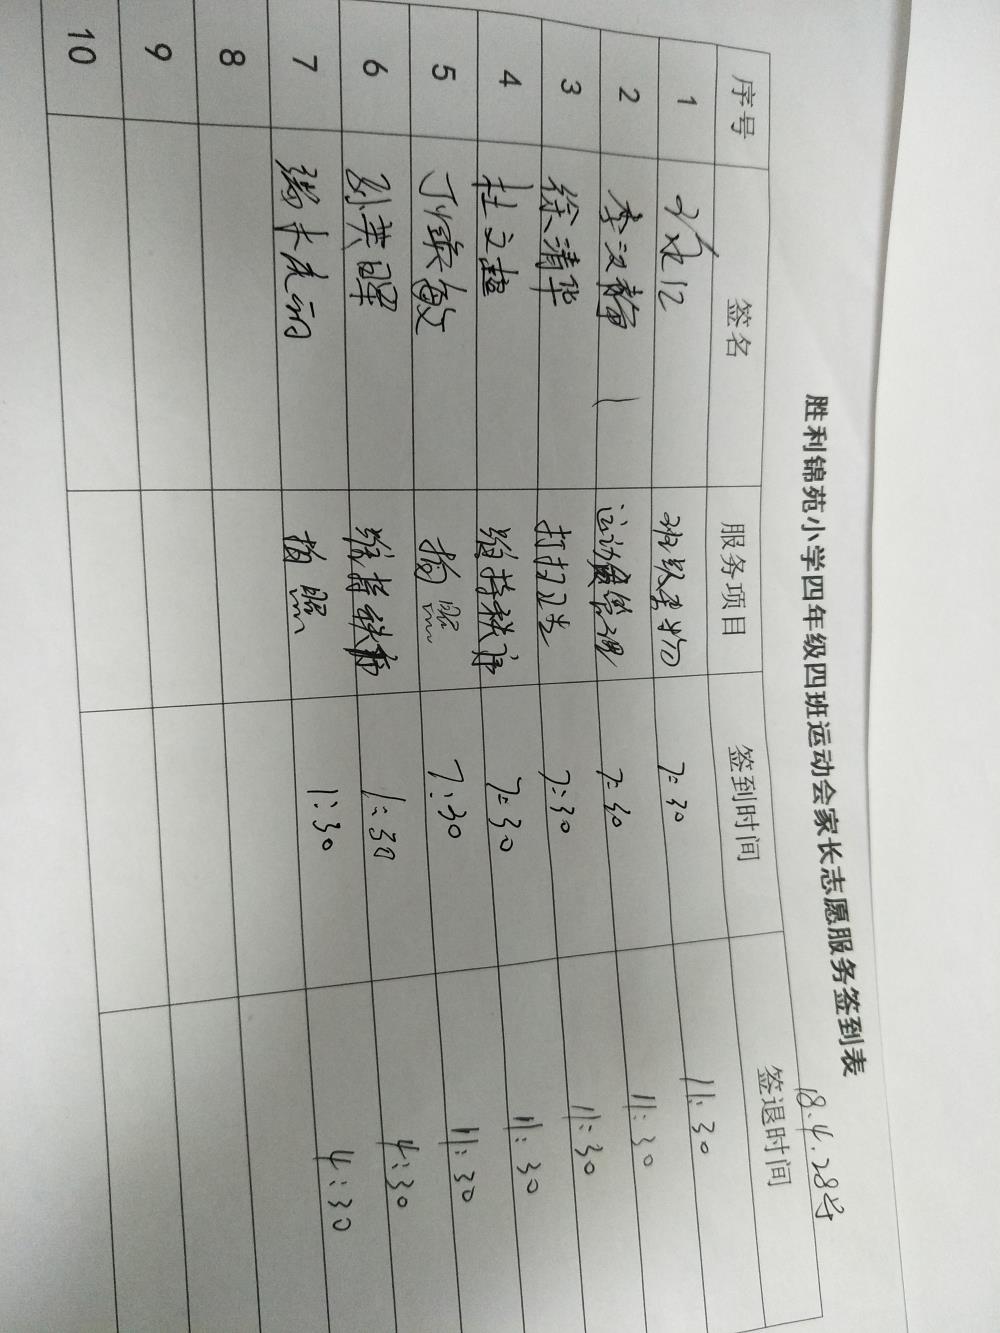 胜利锦苑小学四年级四班运动会家长志愿服务签到表
18.4.28号
序号 签名 服务项目 签到时间 签退时间
1 7:30 11:30
2 李汉 运动员管理 7:30 11:30
3 徐清华 打扫卫生 7:30 11:30
4 杜文超 维持秩序 7:30 11:30
5 丁焕敏 拍照 7:30 11:30
6 孙英晖 维持秩序 1:30 4:30
7 拍照 1:30 4:30
8
9
10